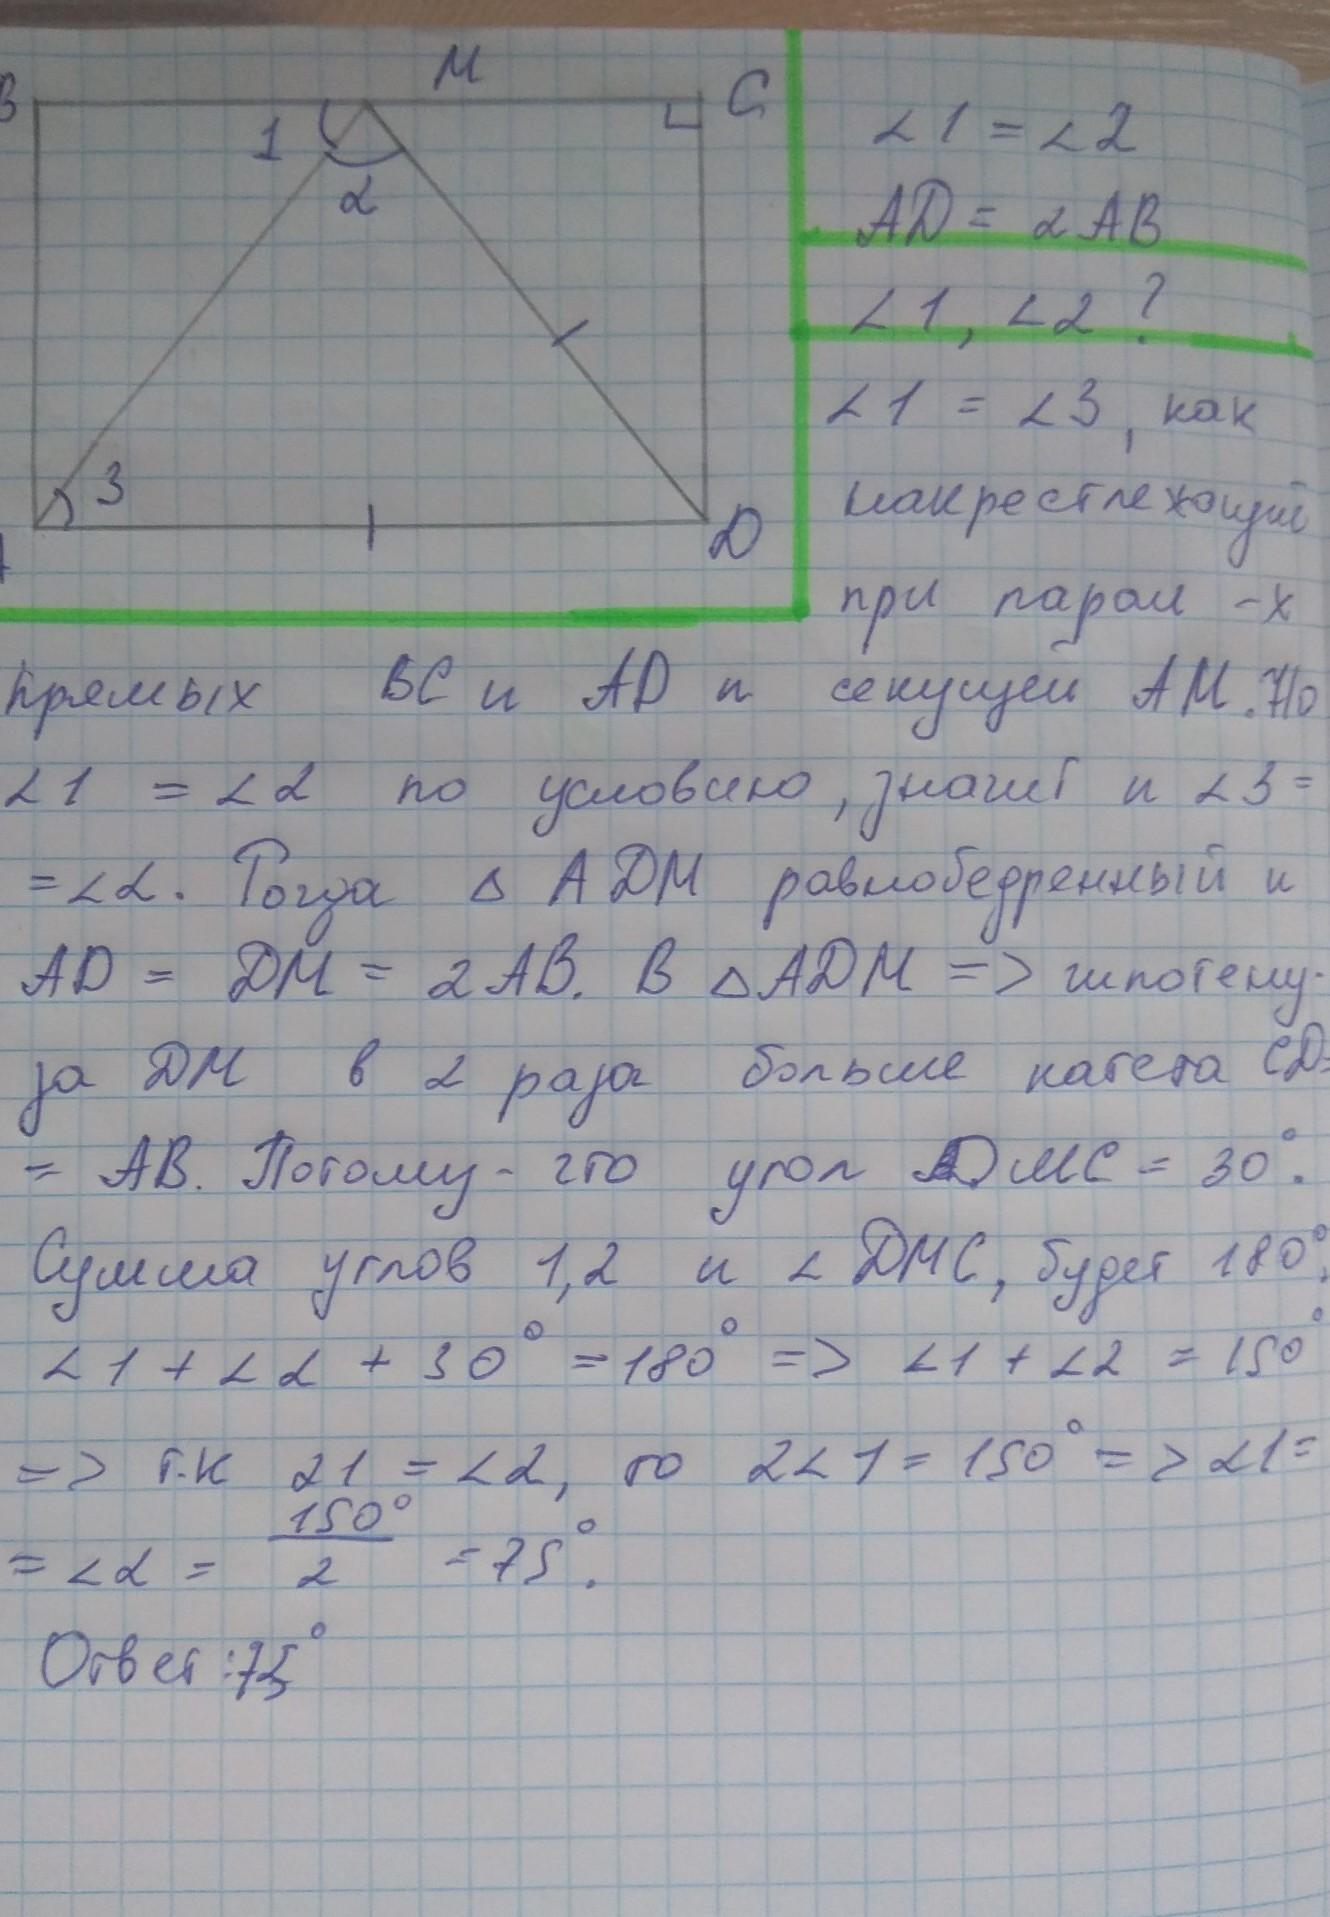 В М С
1
2
3
А D
∠1 = ∠2
AD = 2AB
∠1, ∠2 ?
∠1 = ∠3, как
накрестлежащий
при парал-х
прямых BC и AD и секущей AM. Но
∠1 = ∠2 по условию, значит и ∠3 =
= ∠2. Тогда △ ADM равнобедренный и
AD = DM = 2AB. В △ADM => гипотену-
за DM в 2 раза больше катета CD=
= AB. Потому-что угол DMC = 30°.
Сумма углов 1,2 и ∠DMC, будет 180°.
∠1 + ∠2 + 30° = 180° => ∠1 + ∠2 = 150°
=> т.к ∠1 = ∠2, то 2∠1 = 150° => ∠1 =
= ∠2 = 150°/2 = 75°.
Ответ: 75°